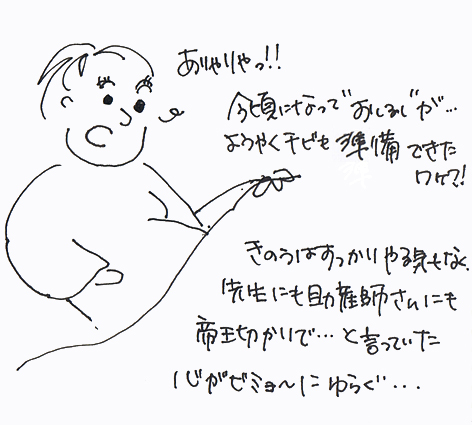 ありゃりゃっ!!
今頃になって"おしるし"が…
ようやく子ども準備できた
ワケ?!
きのうはすっかりやる気もなく、
先生にも助産師さんにも
帝王切かいで…と言っていた
心がビミョ〜にゆらぐ・・・